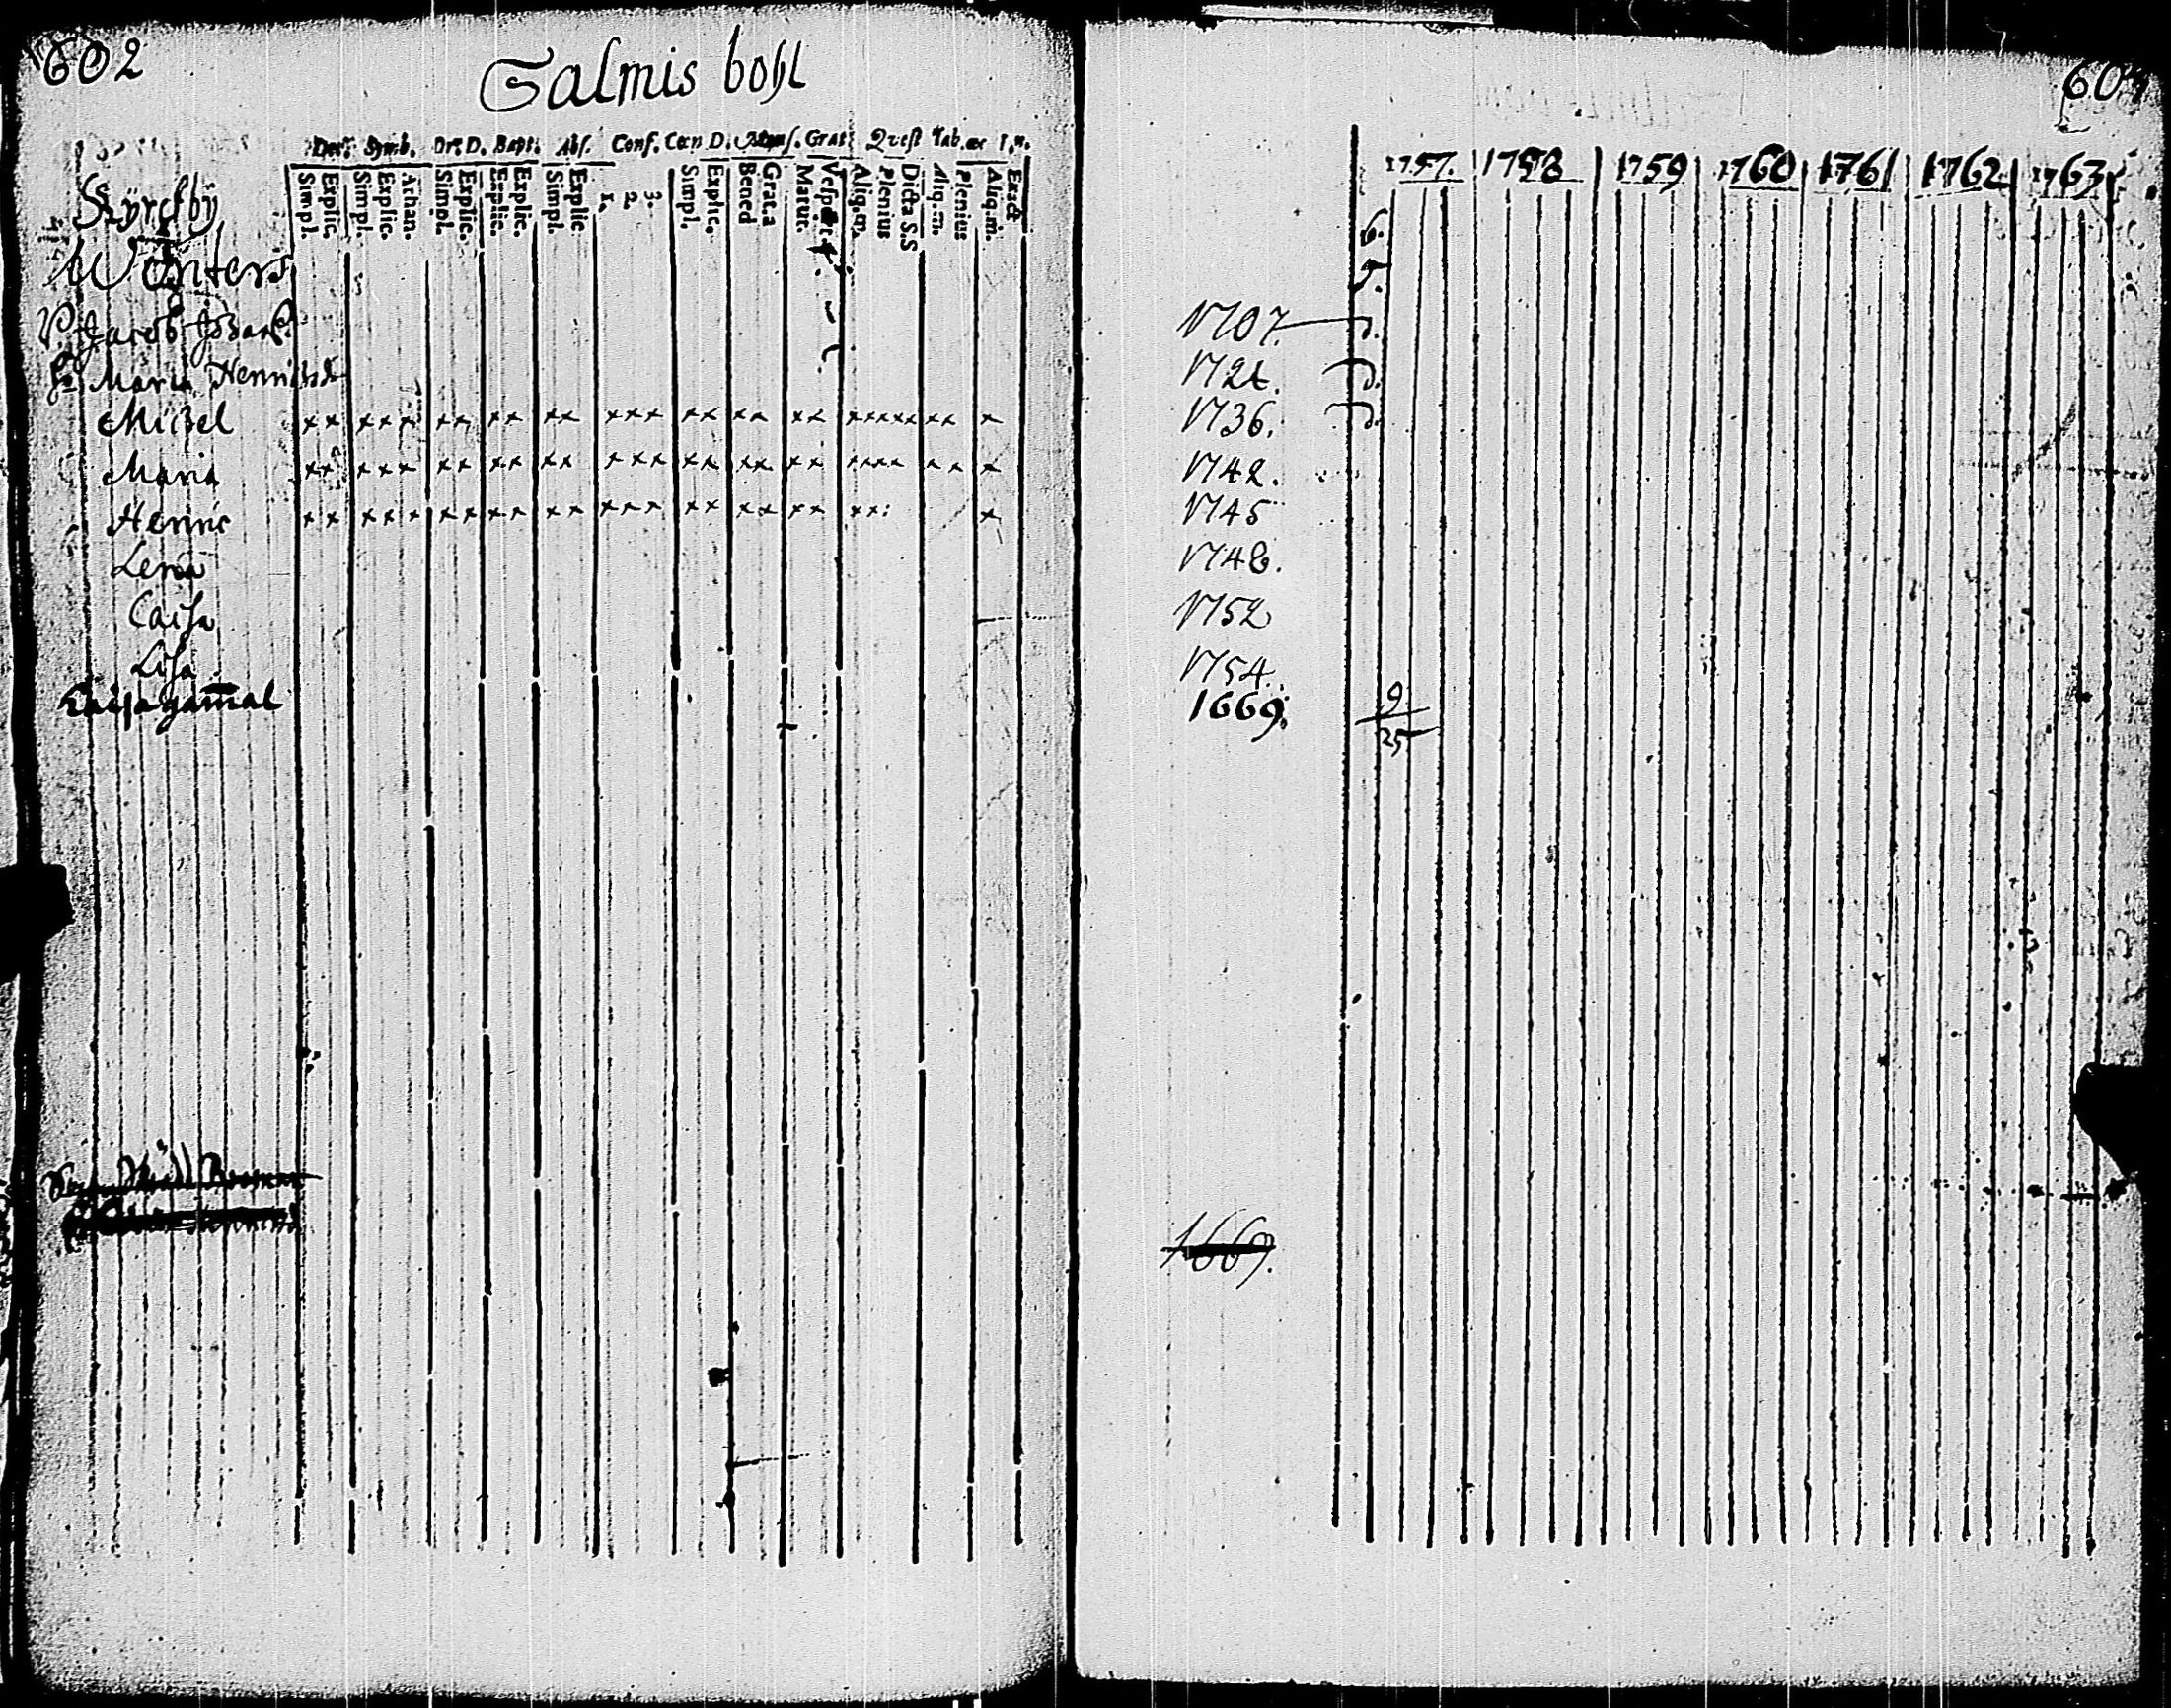 602
Salmis bohl
Dec. Symb. Or. D. Bapt. Abs. Conf. Cœn D. Mens. Grat. Quest Tab. œc
Simpl. Explic. Simpl. Explic. Athan. Simpl. Explic. Explic. Explic. Simpl. Explic 1. 2. 3. Simpl. Explic. Bened Grat.a Matut. Vespert. Aliq.m. Plenius Dicta S.S Aliq.m. Plenius Aliq.m. Exact
Kÿrckbÿ
Wänters
Jacob
Maria Henricsd
Michel ×× ××× ×× ×× ×× ××× ×× ×× ×× ××××× ×× ×
Maria ×× ××× ×× ×× ×× ××× ×× ×× ×× ×××× ×× ×
Henric ×× ××× ×× ×× ×× ××× ×× ×× ×× ××: ×
Lena
Caisa
Lisa
Caisa gamal
1757. 1758 1759 1760 1761 1762 1763
1707.
1721.
1736.
1742.
1745
1748.
1752
1754.
1669. 9/25
1669.